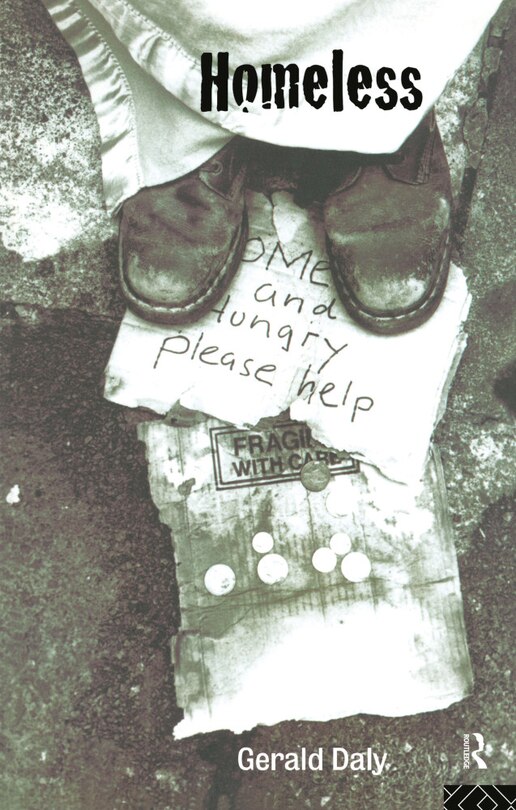 Homeless
OME
and
Hungry
please help
FRAGIL
WITH CARE
Gerald Daly
ROUTLEDGE